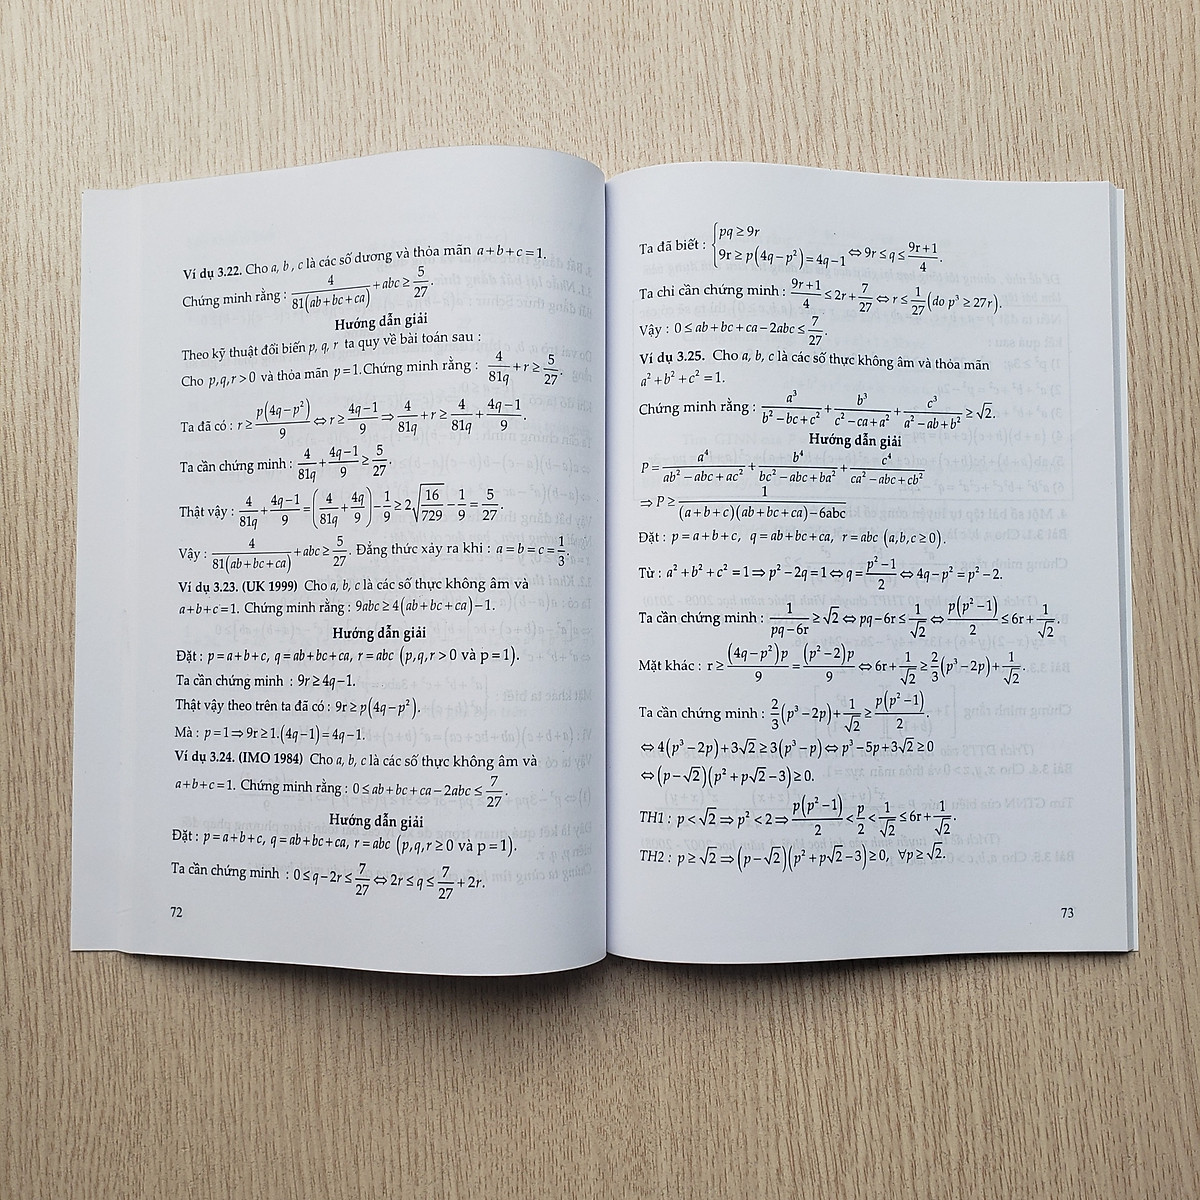 Ví dụ 3.22. Cho a, b, c là các số dương và thỏa mãn a+b+c=1.
Chứng minh rằng : 4/(81(ab+bc+ca)) + abc ≥ 5/27.
Hướng dẫn giải
Theo kỹ thuật đổi biến p, q, r ta quy về bài toán sau :
Cho p,q,r>0 và thỏa mãn p=1. Chứng minh rằng : 4/(81q) + r ≥ 5/27.
Ta đã có : r ≥ p(4q−p²)/9 ⇔ r ≥ (4q−1)/9 ⇒ 4/(81q) + r ≥ 4/(81q) + (4q−1)/9.
Ta cần chứng minh : 4/(81q) + (4q−1)/9 ≥ 5/27.
Thật vậy : 4/(81q) + (4q−1)/9 = (4/(81q) + 4q/9) − 1/9 ≥ 2√(16/729) − 1/9 = 5/27.
Vậy : 4/(81(ab+bc+ca)) + abc ≥ 5/27. Đẳng thức xảy ra khi : a=b=c=1/3.
Ví dụ 3.23. (UK 1999) Cho a, b, c là các số thực không âm và
a+b+c=1. Chứng minh rằng : 9abc ≥ 4(ab+bc+ca)−1.
Hướng dẫn giải
Đặt : p=a+b+c, q=ab+bc+ca, r=abc (p,q,r>0 và p=1).
Ta cần chứng minh : 9r ≥ 4q−1.
Thật vậy theo trên ta đã có : 9r ≥ p(4q−p²).
Mà : p=1 ⇒ 9r ≥ 1.(4q−1)=4q−1.
Ví dụ 3.24. (IMO 1984) Cho a, b, c là các số thực không âm và
a+b+c=1. Chứng minh rằng : 0 ≤ ab+bc+ca−2abc ≤ 7/27.
Hướng dẫn giải
Đặt : p=a+b+c, q=ab+bc+ca, r=abc (p,q,r≥0 và p=1).
Ta cần chứng minh : 0 ≤ q−2r ≤ 7/27 ⇔ 2r ≤ q ≤ 7/27 + 2r.
72
Ta đã biết : { pq ≥ 9r
9r ≥ p(4q−p²)=4q−1 ⇔ 9r ≤ q ≤ (9r+1)/4.
Ta chỉ cần chứng minh : (9r+1)/4 ≤ 2r + 7/27 ⇔ r ≤ 1/27 (do p³ ≥ 27r).
Vậy : 0 ≤ ab+bc+ca−2abc ≤ 7/27.
Ví dụ 3.25. Cho a, b, c là các số thực không âm và thỏa mãn
a²+b²+c²=1.
Chứng minh rằng : a³/(b²−bc+c²) + b³/(c²−ca+a²) + c³/(a²−ab+b²) ≥ √2.
Hướng dẫn giải
P = a⁴/(ab²−abc+ac²) + b⁴/(bc²−abc+ba²) + c⁴/(ca²−abc+cb²)
⇒ P ≥ 1/((a+b+c)(ab+bc+ca)−6abc)
Đặt : p=a+b+c, q=ab+bc+ca, r=abc (a,b,c≥0).
Từ : a²+b²+c²=1 ⇒ p²−2q=1 ⇔ q=(p²−1)/2 ⇔ 4q−p²=p²−2.
Ta cần chứng minh : 1/(pq−6r) ≥ √2 ⇔ pq−6r ≤ 1/√2 ⇔ p(p²−1)/2 ≤ 6r + 1/√2.
Mặt khác : r ≥ (4q−p²)p/9 = (p²−2)p/9 ⇔ 6r + 1/√2 ≥ 2/3(p³−2p) + 1/√2.
Ta cần chứng minh : 2/3(p³−2p) + 1/√2 ≥ p(p²−1)/2.
⇔ 4(p³−2p)+3√2 ≥ 3(p³−p) ⇔ p³−5p+3√2 ≥ 0
⇔ (p−√2)(p²+p√2−3) ≥ 0.
TH1 : p<√2 ⇒ p²<2 ⇒ p(p²−1)/2 < p/2 < 1/√2 ≤ 6r + 1/√2.
TH2 : p ≥ √2 ⇒ (p−√2)(p²+p√2−3) ≥ 0, ∀p ≥ √2.
73